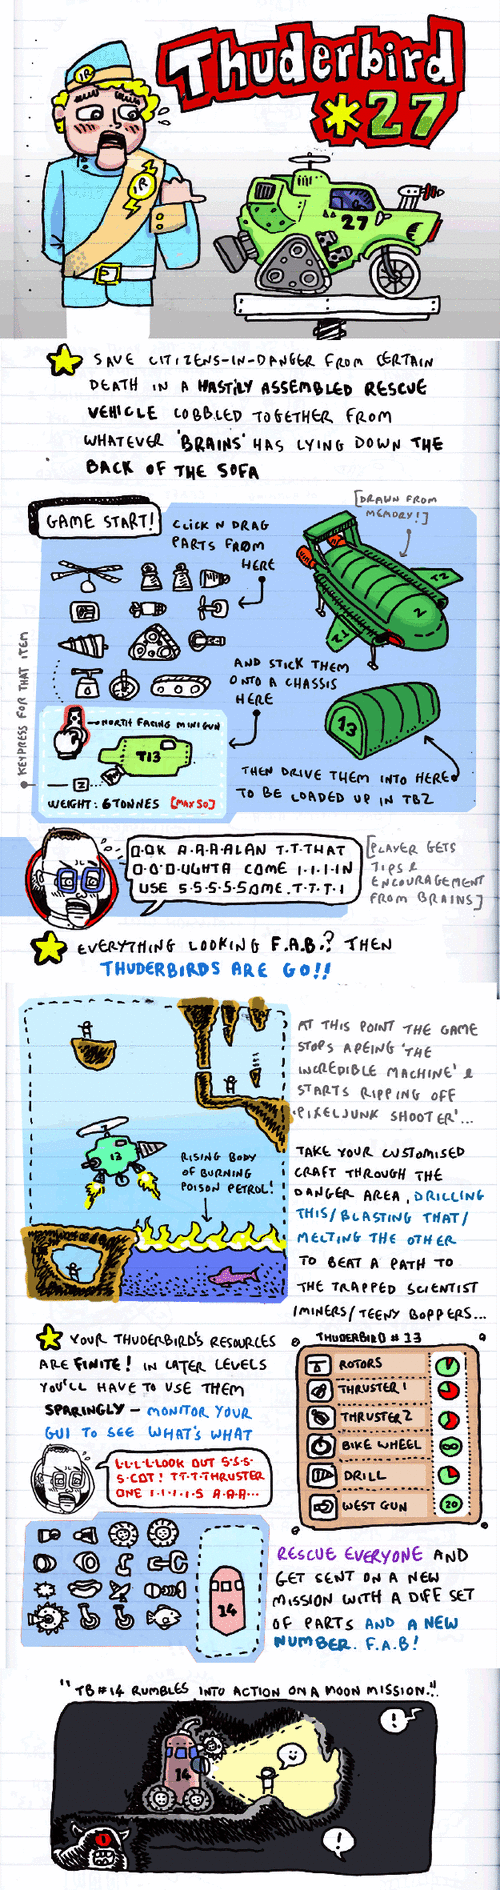 IR
IR
Thuderbird
*27
27
SAVE CITIZENS-IN-DANGER FROM CERTAIN
DEATH IN A HASTILY ASSEMBLED RESCUE
VEHICLE COBBLED TOGETHER FROM
WHATEVER 'BRAINS' HAS LYING DOWN THE
BACK OF THE SOFA
GAME START!
CLICK N DRAG
PARTS FROM
HERE
[DRAWN FROM
MEMORY!]
T2
2
T2
AND STICK THEM
ONTO A CHASSIS
HERE
KEYPRESS FOR THAT ITEM
NORTH FACING MINIGUN
T13
Z
WEIGHT: 6 TONNES [MAX 50]
13
THEN DRIVE THEM INTO HERE
TO BE LOADED UP IN TB2
O.OK A.A.A.ALAN T.T.THAT
O.O.O.UGHTA COME I.I.I.IN
USE S.S.S.S.SOME.T.T.T.I
[PLAYER GETS
TIPS &
ENCOURAGEMENT
FROM BRAINS]
EVERYTHING LOOKING F.A.B.? THEN
THUDERBIRDS ARE GO!!
AT THIS POINT THE GAME
STOPS APEING 'THE
INCREDIBLE MACHINE' &
STARTS RIPPING OFF
'PIXELJUNK SHOOTER'...
13
RISING BODY
OF BURNING
POISON PETROL!
TAKE YOUR CUSTOMISED
CRAFT THROUGH THE
DANGER AREA, DRILLING
THIS/BLASTING THAT/
MELTING THE OTHER
TO BEAT A PATH TO
THE TRAPPED SCIENTIST
/MINERS/TEENY BOPPERS...
YOUR THUDERBIRD'S RESOURCES
ARE FINITE! IN LATER LEVELS
YOU'LL HAVE TO USE THEM
SPARINGLY – MONITOR YOUR
GUI TO SEE WHAT'S WHAT
THUDERBIRD # 13
ROTORS
THRUSTER 1
THRUSTER 2
BIKE WHEEL
DRILL
WEST GUN 20
L.L.L.LLOOK OUT S.S.S.
S.COT! T.T.T.THRUSTER
ONE I.I.I.I.S A.A.A...
14
RESCUE EVERYONE AND
GET SENT ON A NEW
MISSION WITH A DIFF SET
OF PARTS AND A NEW
NUMBER. F.A.B!
"TB#14 RUMBLES INTO ACTION ON A MOON MISSION..."
!
14
!